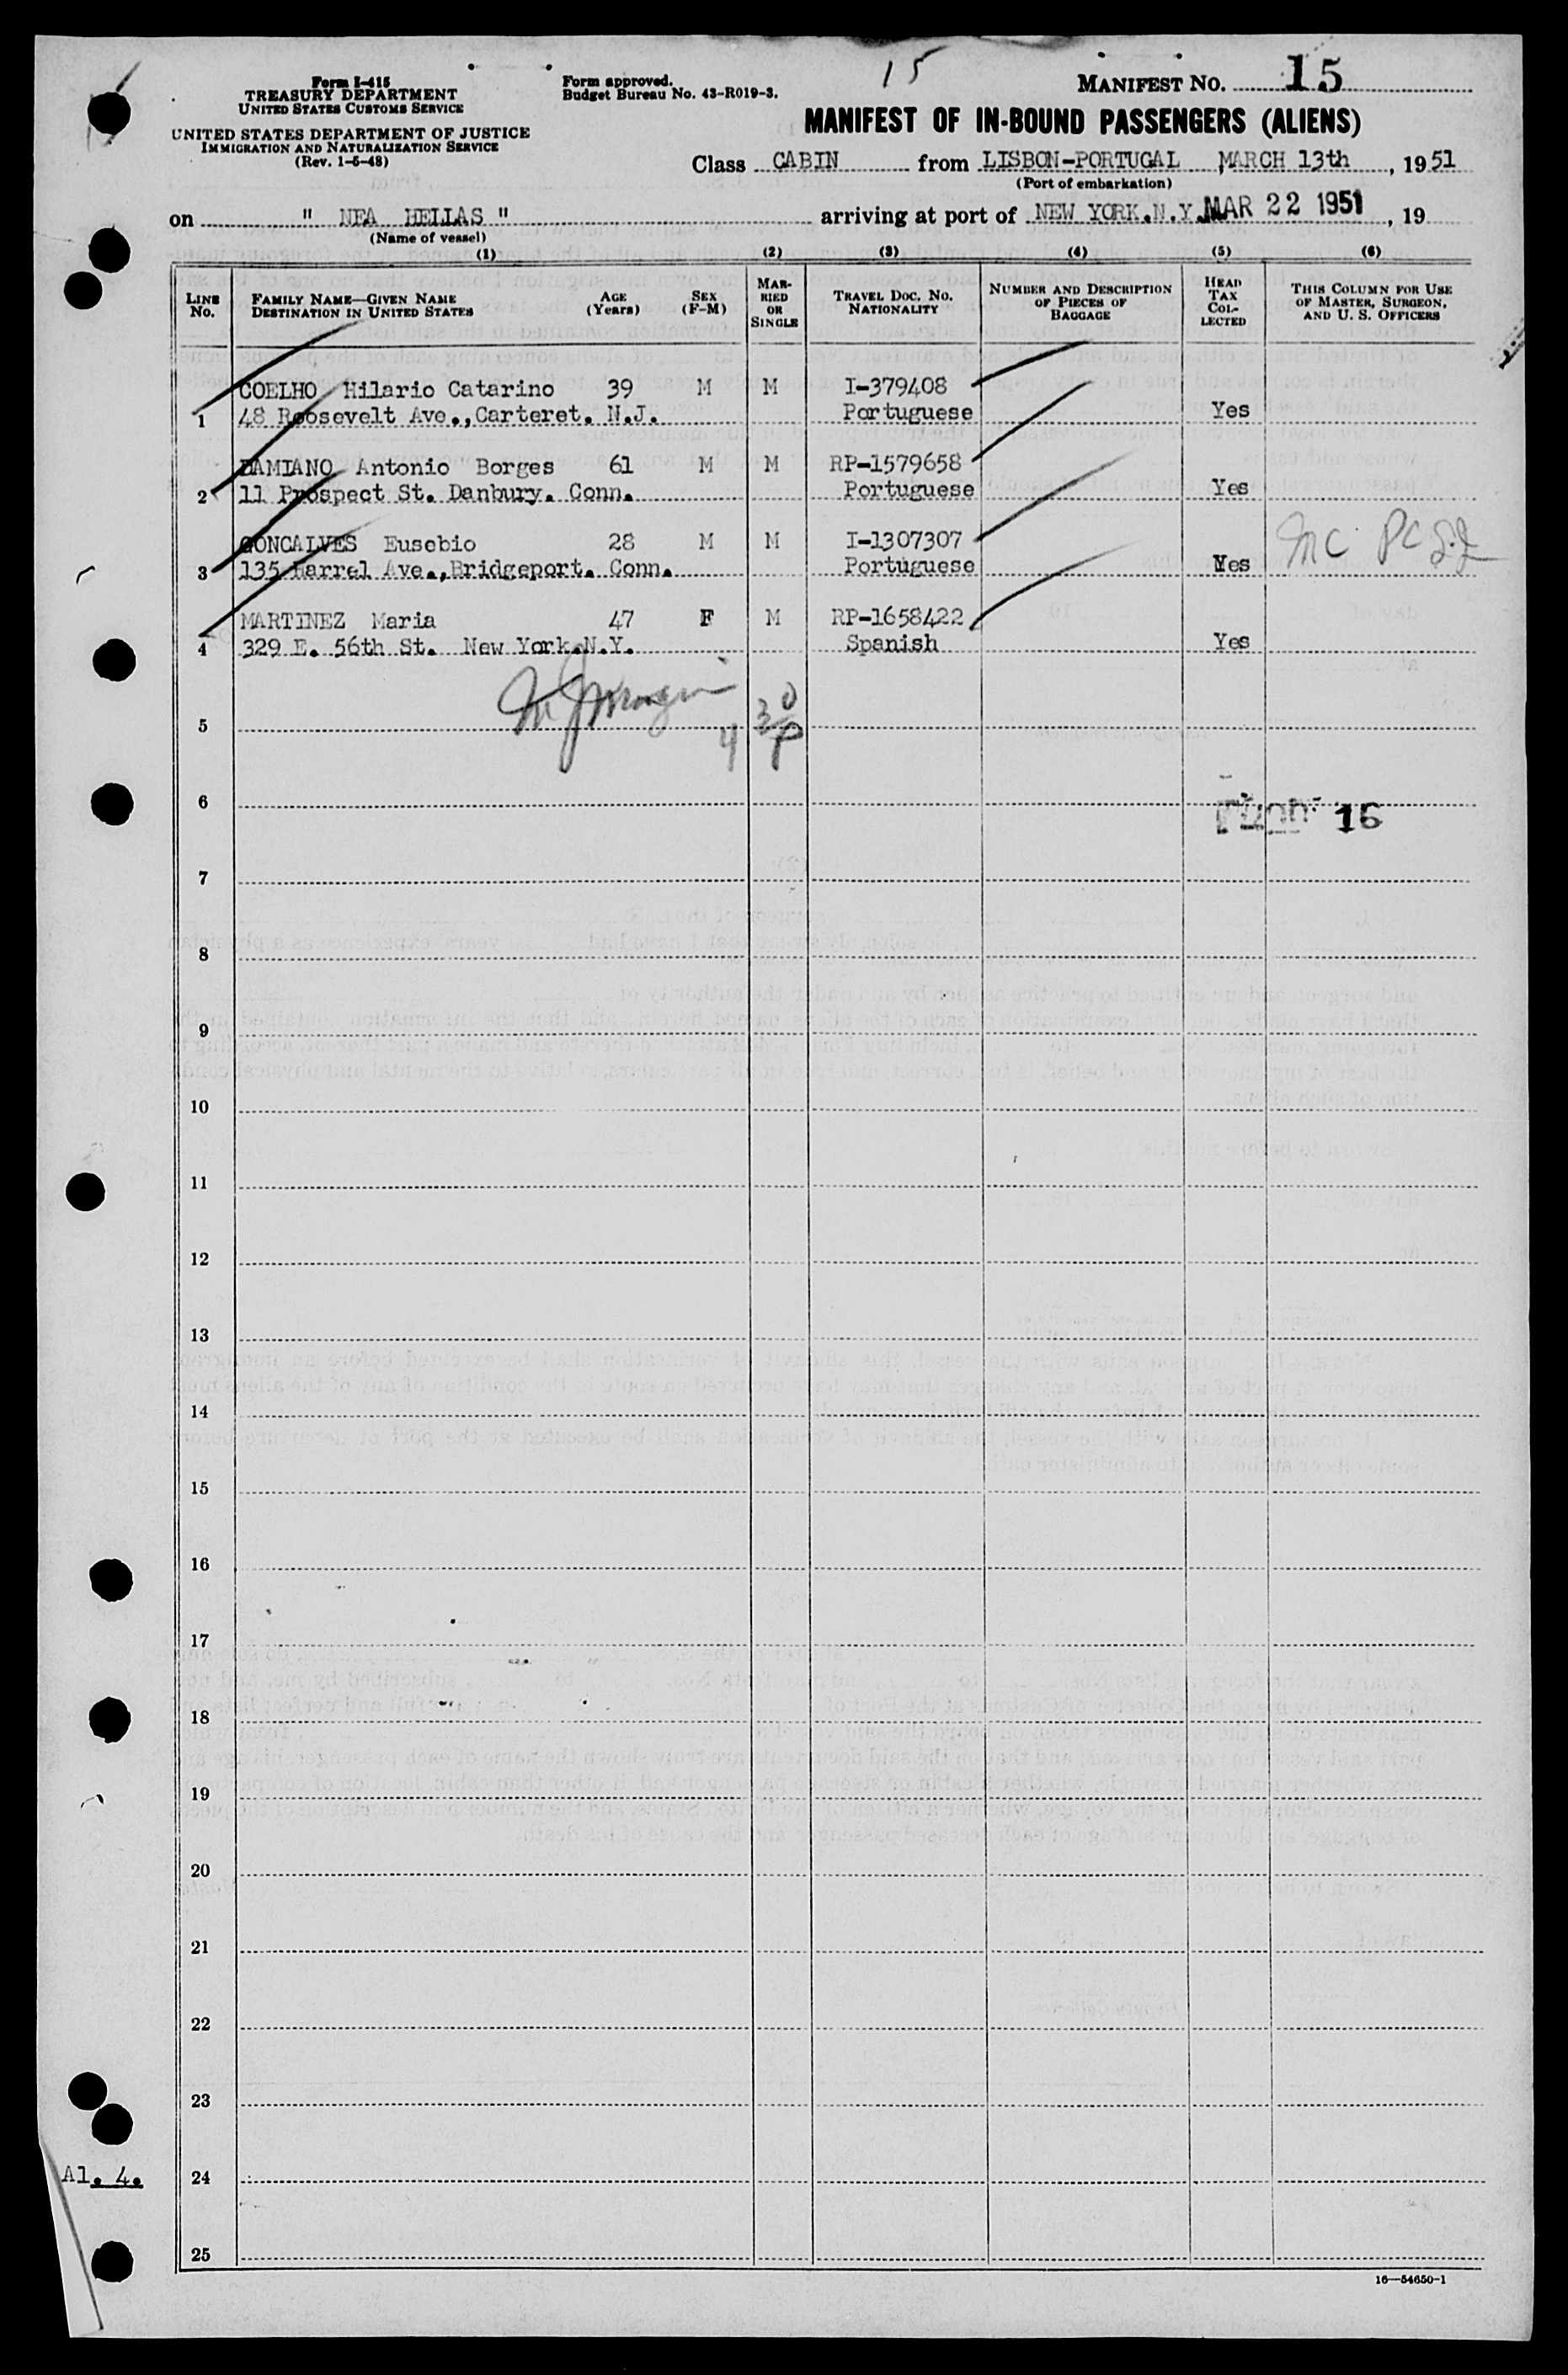 15
Form I-415
TREASURY DEPARTMENT
UNITED STATES CUSTOMS SERVICE
UNITED STATES DEPARTMENT OF JUSTICE
IMMIGRATION AND NATURALIZATION SERVICE
(Rev. 1-5-48)
Form approved.
Budget Bureau No. 43-R019-3.
MANIFEST NO. 15
MANIFEST OF IN-BOUND PASSENGERS (ALIENS)
Class CABIN from LISBON-PORTUGAL , MARCH 13th , 19 51
(Port of embarkation)
on " NEA HELLAS " arriving at port of NEW YORK.N.Y. MAR 22 1951 , 19
(Name of vessel)
(1) (2) (3) (4) (5) (6)
LINE No. FAMILY NAME—GIVEN NAME DESTINATION IN UNITED STATES AGE (Years) SEX (F-M) MARRIED OR SINGLE TRAVEL DOC. NO. NATIONALITY NUMBER AND DESCRIPTION OF PIECES OF BAGGAGE HEAD TAX COLLECTED THIS COLUMN FOR USE OF MASTER, SURGEON, AND U. S. OFFICERS
COELHO Hilario Catarino 39 M M I-379408
1 48 Roosevelt Ave.,Carteret. N.J. Portuguese Yes
DAMIANO Antonio Borges 61 M M RP-1579658
2 11 Prospect St. Danbury. Conn. Portuguese Yes
GONCALVES Eusebio 28 M M I-1307307
3 135 Harrel Ave.,Bridgeport. Conn. Portuguese Yes
MARTINEZ Maria 47 F M RP-1658422
4 329 E. 56th St. New York.N.Y. Spanish Yes
4 30 P
5
6
16
7
8
9
10
11
12
13
14
15
16
17
18
19
20
21
22
23
Al. 4.
24
25
16—54650-1